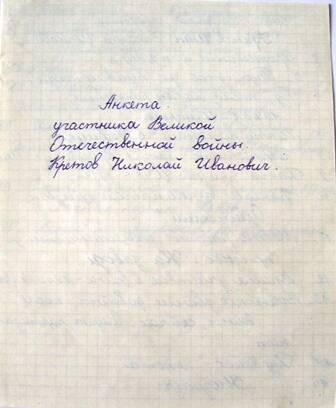 Анкета.
участника Великой
Отечественной войны
Кретов Николай Иванович.